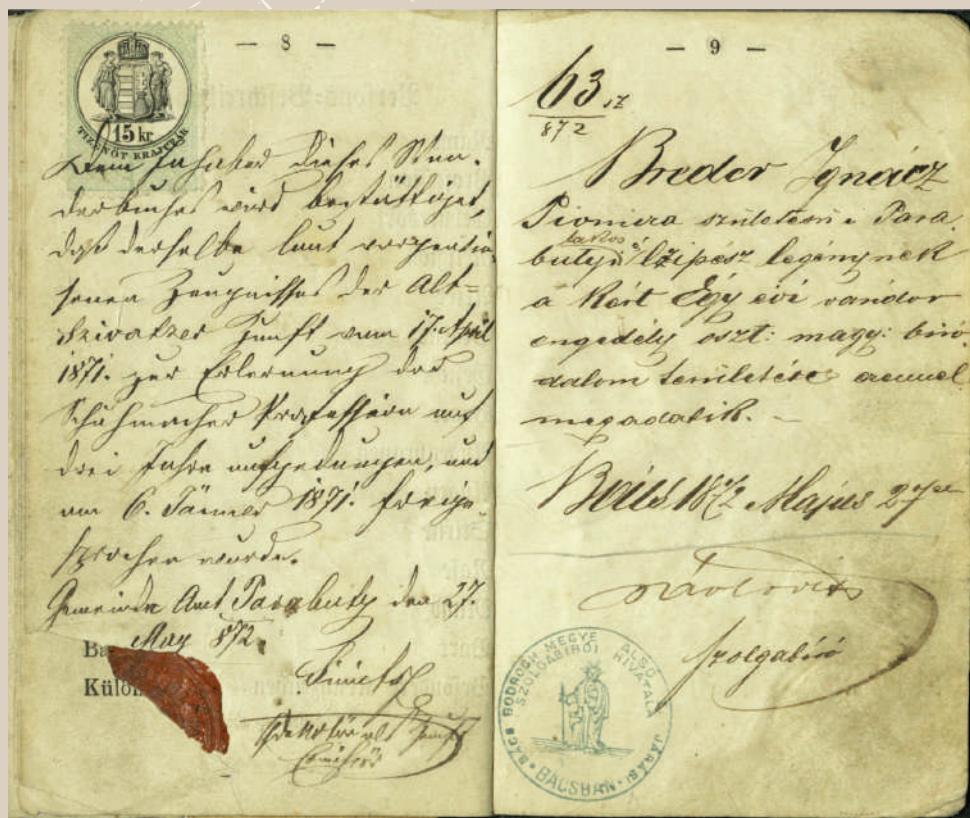 — 8 —
15 kr.
TIZENÖT KRAJCZÁR
Dem Inhaber dieses Wan-
derbuches wird bestättiget,
daß derselbe laut vorgewie-
senen Zeugnisses der Alt-
Szivatzer Zunft vom 17. April
1871. zur Erlernung der
Schuhmacher Profession auf
drei Jahre aufgedungen, und
am 6. Jänner 1871. freige-
sprochen wurde.
Gemeinde Amt Parabuty den 27.
May 872.
Ba
Külön
— 9 —
63 sz
872
Breder Ignácz
születésü Para
lakos
butyi czipész legénynek
a kért Egy évi vándor
engedély oszt: magy: biro-
dalom területére ezennel
megadatik.
Bács 1872 Majus 27én
Szolgabiró
BÁCS BODROGH MEGYE ALSÓ JÁRÁSI
SZOLGABIRÓI HIVATALA
BÁCSBAN